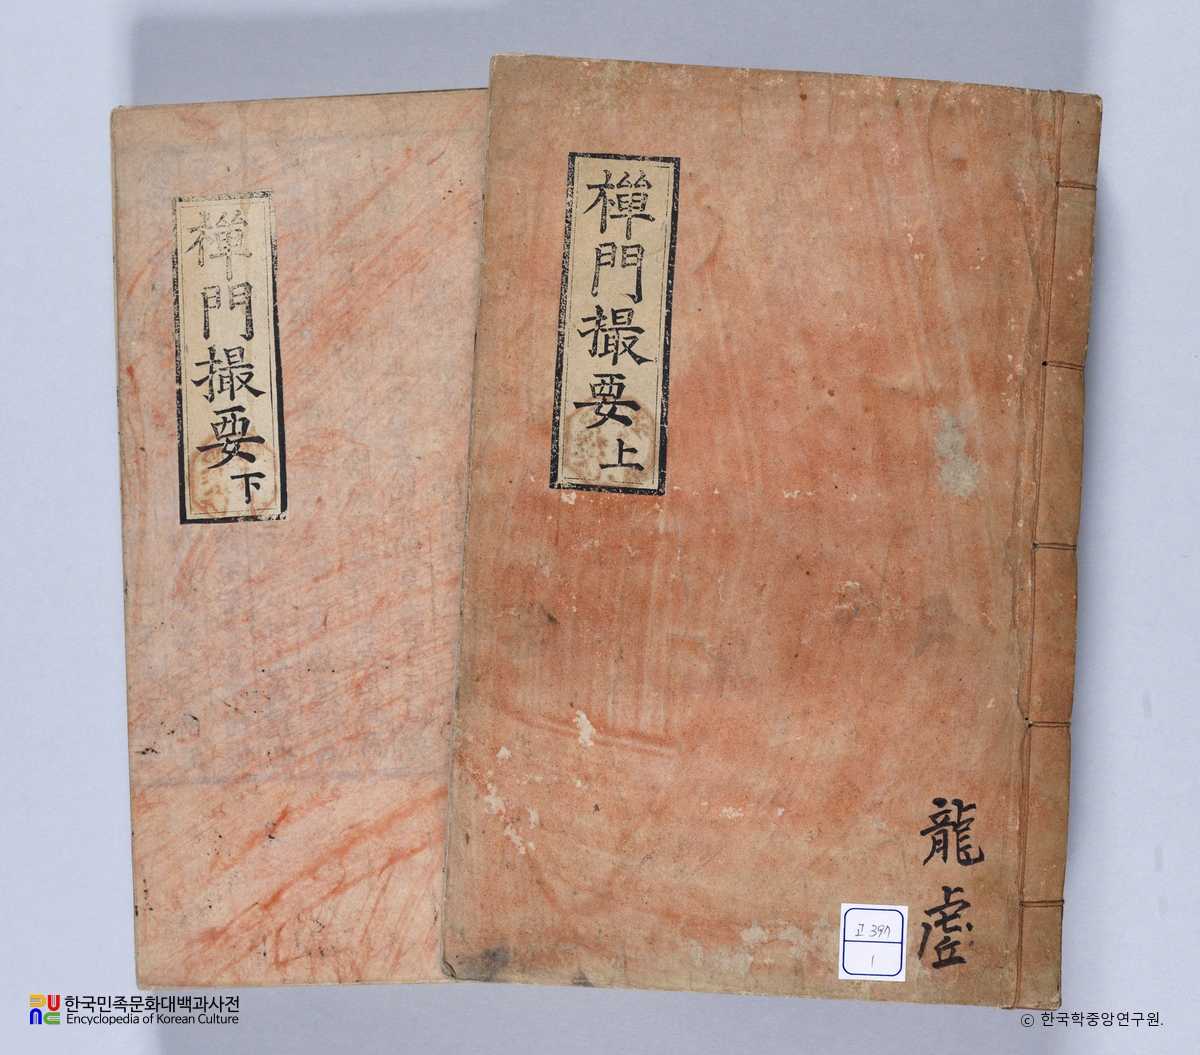 禪門撮要 下
禪門撮要 上
龍虛
고 397
1
한국민족문화대백과사전
Encyclopedia of Korean Culture
ⓒ 한국학중앙연구원.